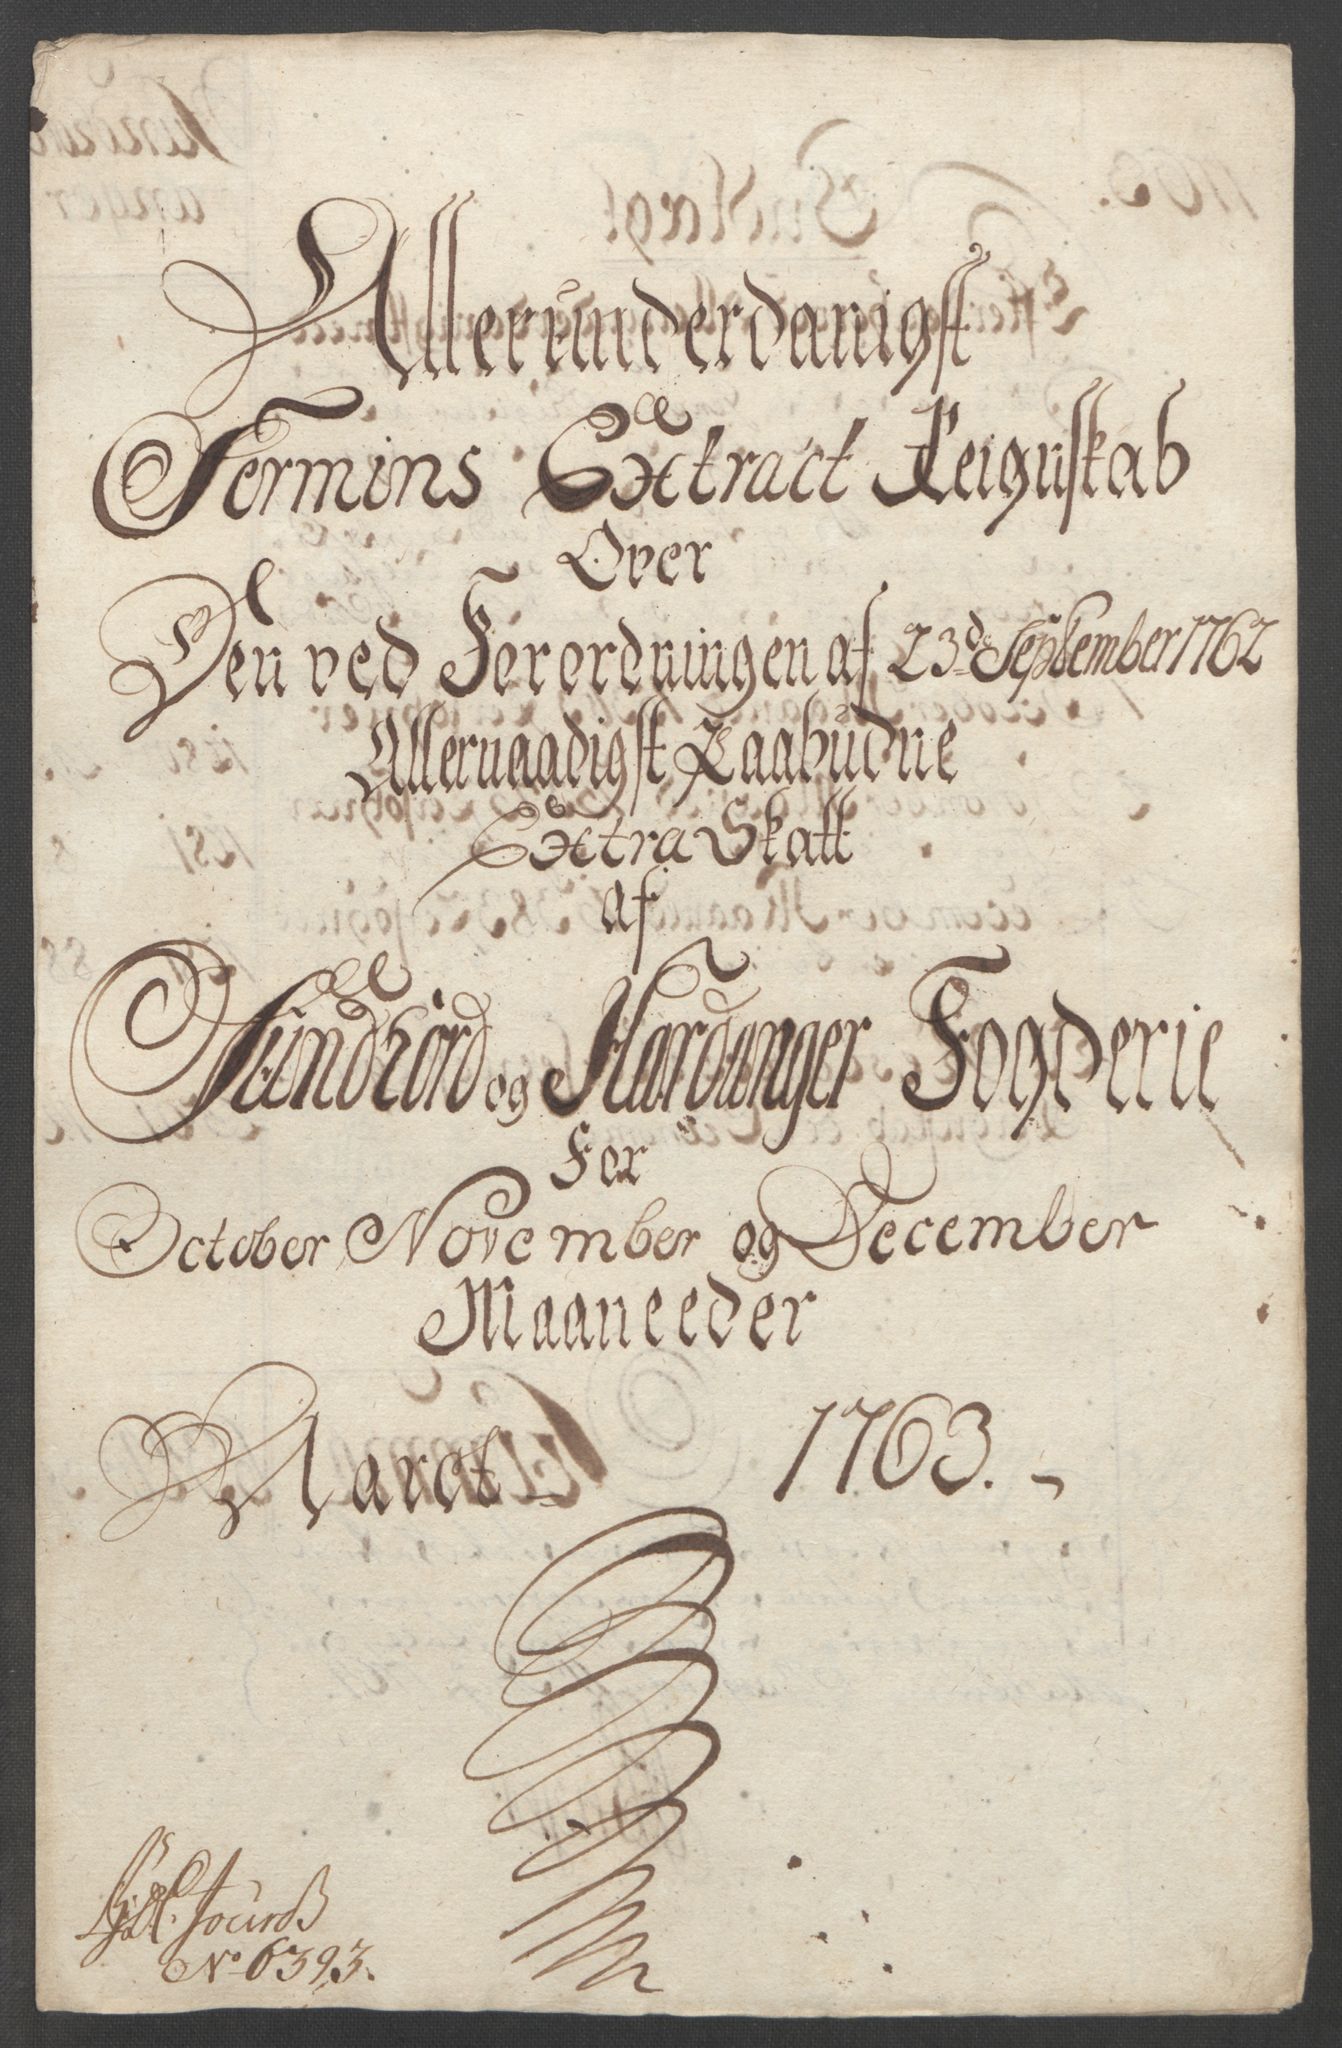 Allerunderdanigst
Termins Extract Reignskab
Over
Den ved Forordningen af 23d September 1762
Allernaadigst Paabudne
Extra Skatt
af
Sundhord og Hardanger Fogderie
For
October November og December
Maaneeder
Aaret 1763.
No 6393.